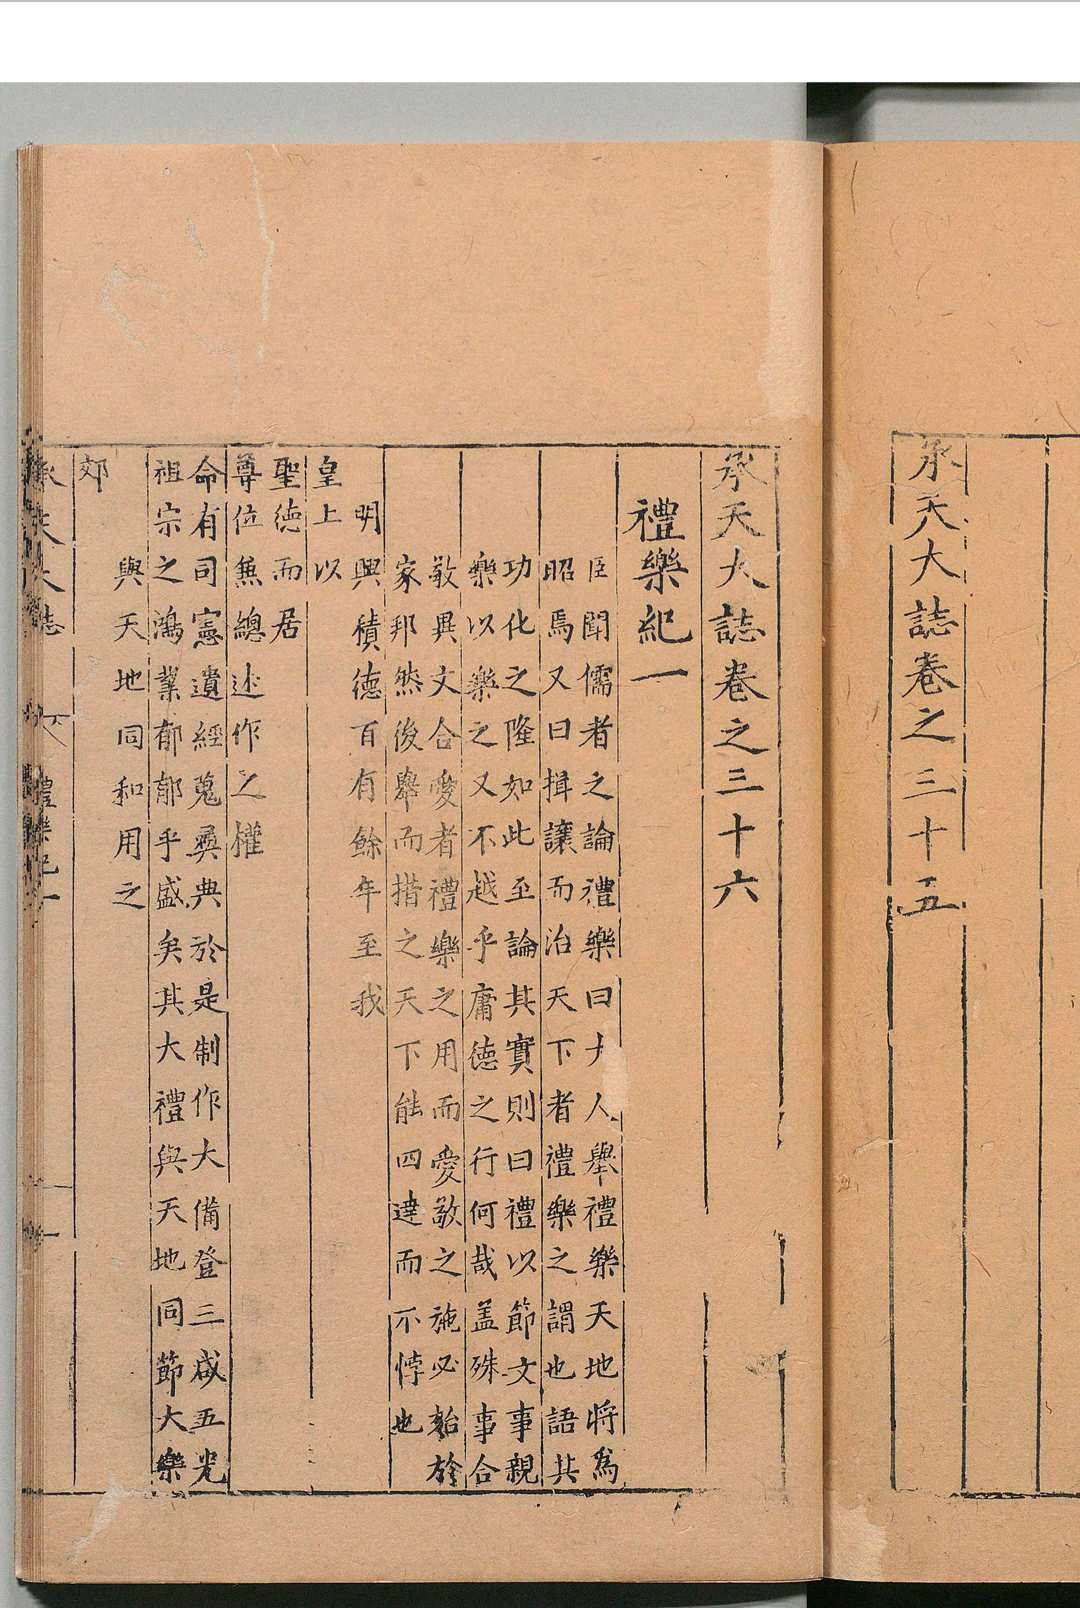 承天大誌卷之三十五
承天大誌卷之三十六
禮樂紀一
臣聞儒者之論禮樂曰大人舉禮樂天地將為
昭焉又曰揖讓而治天下者禮樂之謂也語其
功化之隆如此至論其實則曰禮以節文事親
樂以樂之又不越乎庸德之行何哉盖殊事合
敬異文合愛者禮樂之用而愛敬之施必始於
家邦然後舉而措之天下能四達而不悖也
明興積德百有餘年至我
皇上以
聖德而居
尊位兼總述作之權
命有司憲遺經蒐彝典於是制作大備登三咸五光
祖宗之鴻業郁郁乎盛矣其大禮與天地同節大樂
與天地同和用之
郊
承天大誌
禮樂紀一
一